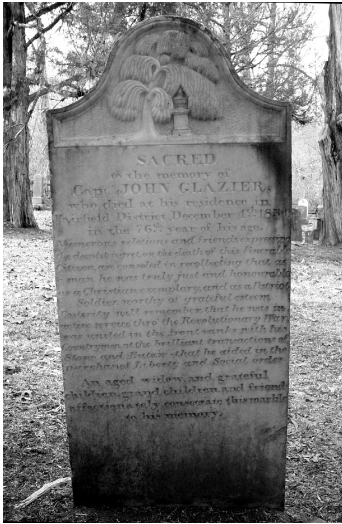 SACRED
to the memory of
Capt. JOHN GLAZIER,
who died at his residence in
Fairfield District, December
in the 76th year of his age.
Numerous relations and friends express
the death of this
Citizen, are consoled in reflecting that as a
man he was truly just and honourable
as a Christian exemplary, and as a Patriot
Soldier, worthy of grateful esteem.
Posterity will remember that he was in
service thro the Revolutionary War
in the front ranks with his
at the brilliant transactions of
Stono and Eutaw, that he aided in the
Liberty and Social order
An aged widow, and grateful
children, grand children, and friends
affectionately consecrate this marble
to his memory.